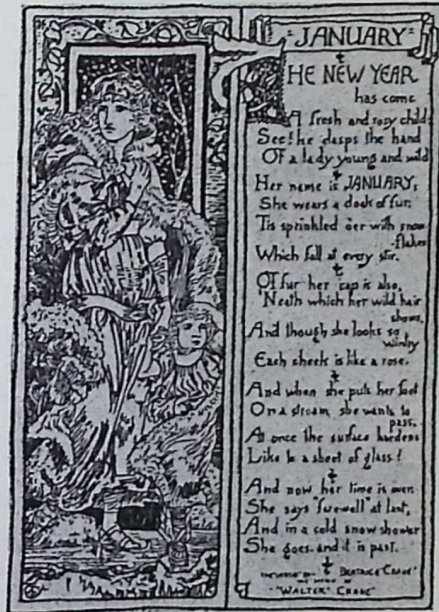 JANUARY
THE NEW YEAR
has come
A fresh and rosy child:
See! he clasps the hand
Of a lady young and wild
Her name is JANUARY,
She wears a cloak of fur:
Tis sprinkled o'er with snow
-flakes
Which fall at every stir.
Of fur her cap is also,
'Neath which her wild hair
shows,
And though she looks so
wintry
Each cheek is like a rose.
And when she puts her foot
On a stream, she wants to
pass,
At once the surface hardens
Like to a sheet of glass!
And now her time is over
She says "farewell" at last,
And in a cold snow shower
She goes and it is past.
BEATRICE CRANE
"WALTER CRANE"